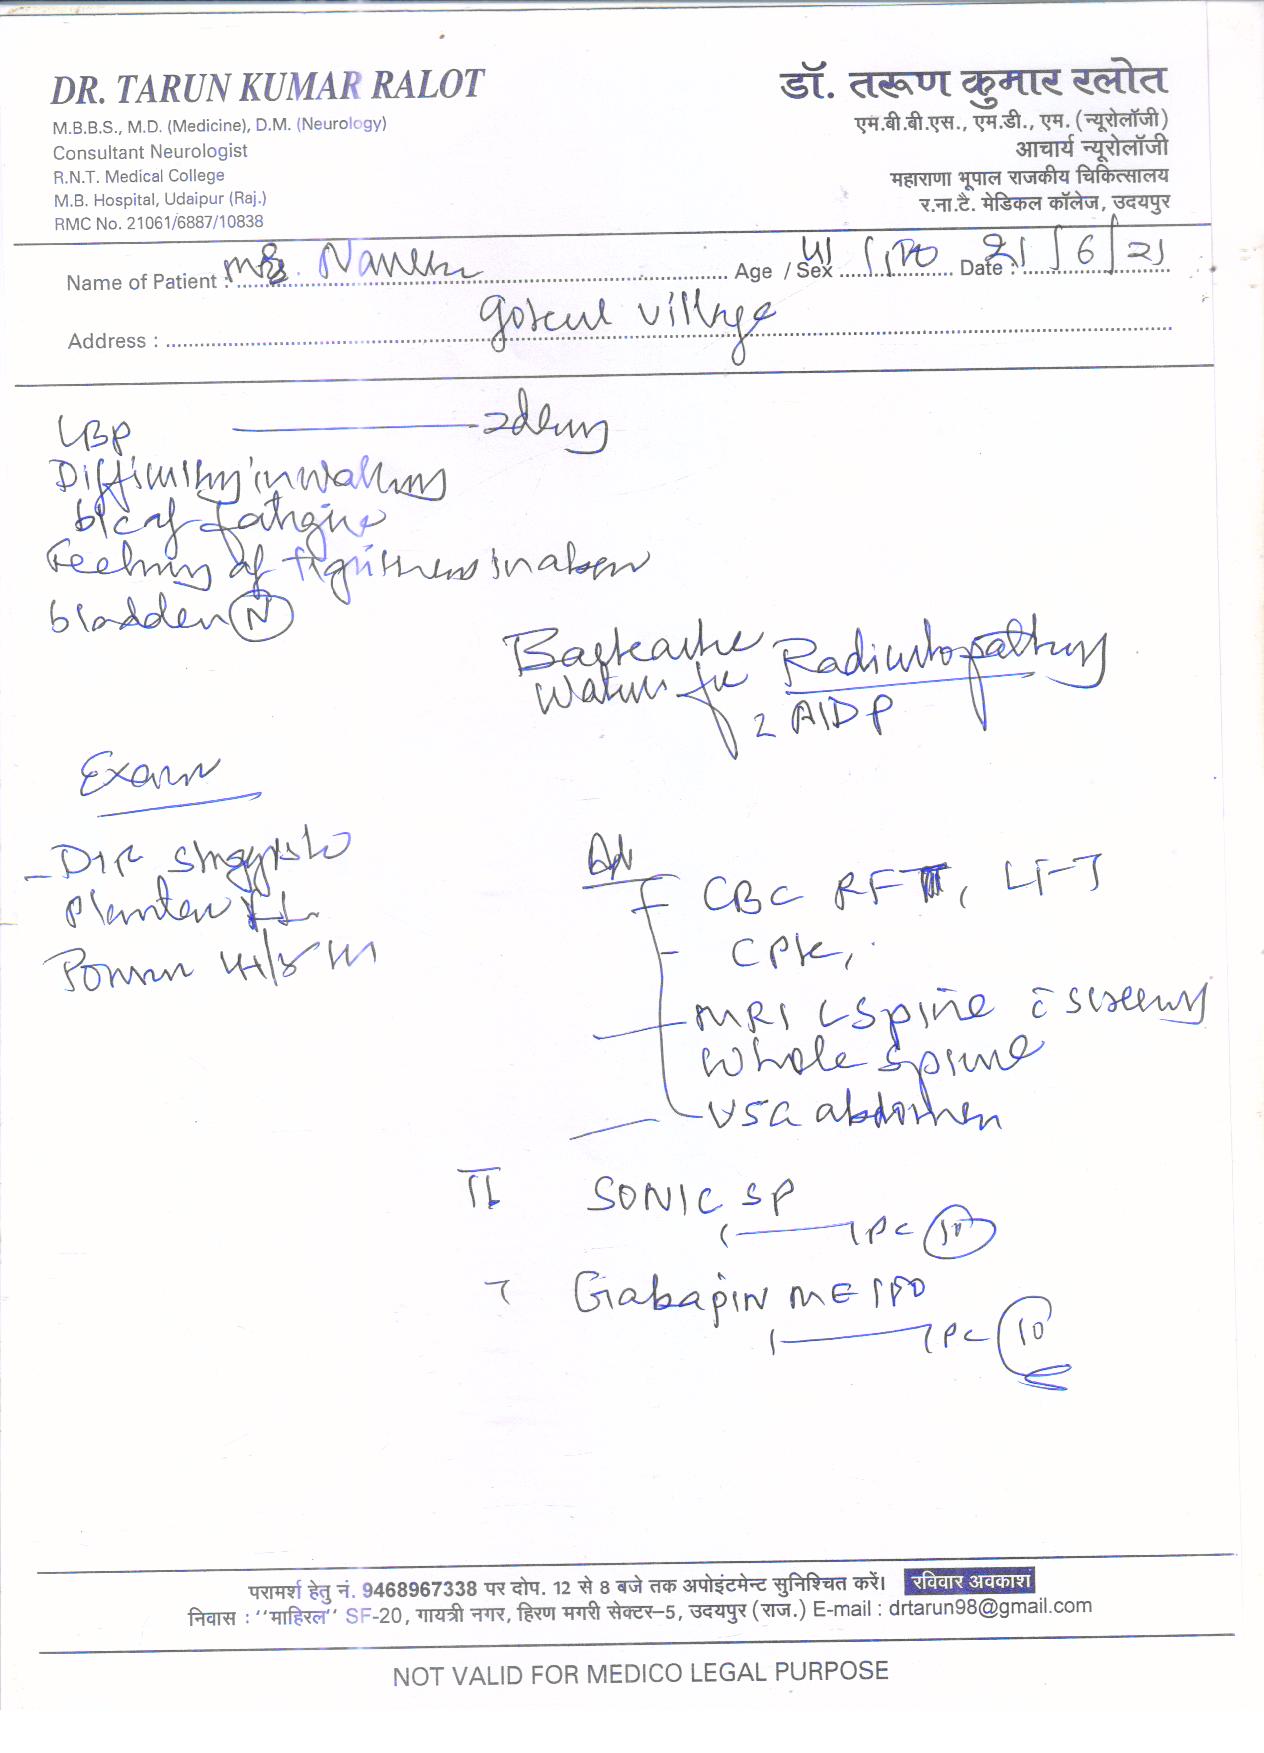 DR. TARUN KUMAR RALOT
M.B.B.S., M.D. (Medicine), D.M. (Neurology)
Consultant Neurologist
R.N.T. Medical College
M.B. Hospital, Udaipur (Raj.)
RMC No. 21061/6887/10838
डॉ. तरूण कुमार रलोत
एम.बी.बी.एस., एम.डी., एम. (न्यूरोलॉजी)
आचार्य न्यूरोलॉजी
महाराणा भूपाल राजकीय चिकित्सालय
र.ना.टै. मेडिकल कॉलेज, उदयपुर
Name of Patient : Age / Sex Date : 21/6/21
Address : village
LBP
Difficulty in walking
fatigue
Feeling of tightness in
bladder N
Backache Radiculopathy
AIDP
Exam
DTR
Plantar
Power
Adv
CBC RFT, LFT
- CPK,
- MRI LSpine c̄ screening
Whole Spine
- USG abdomen
SONIC SP
1 ——— 1 PC 10
Gabapin ME 100
1 ——— 1 PC 10
परामर्श हेतु नं. 9468967338 पर दोप. 12 से 8 बजे तक अपोइंटमेन्ट सुनिश्चित करें। रविवार अवकाश
निवास : ''माहिरल'' SF-20, गायत्री नगर, हिरण मगरी सेक्टर-5, उदयपुर (राज.) E-mail : drtarun98@gmail.com
NOT VALID FOR MEDICO LEGAL PURPOSE